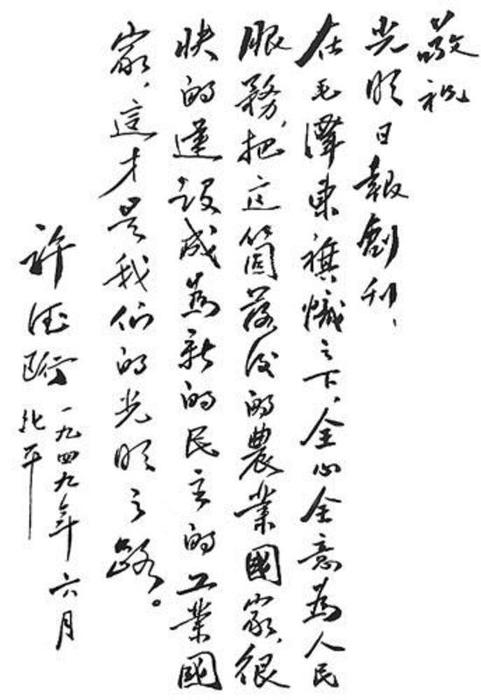 敬祝
光明日報創刊、
在毛澤東旗幟之下,全心全意為人民
服務,把这箇落後的農業國家,很
快的建設成為新的民主的工業國
家,這才是我们的光明之路。
許德珩
一九四九年六月
北平